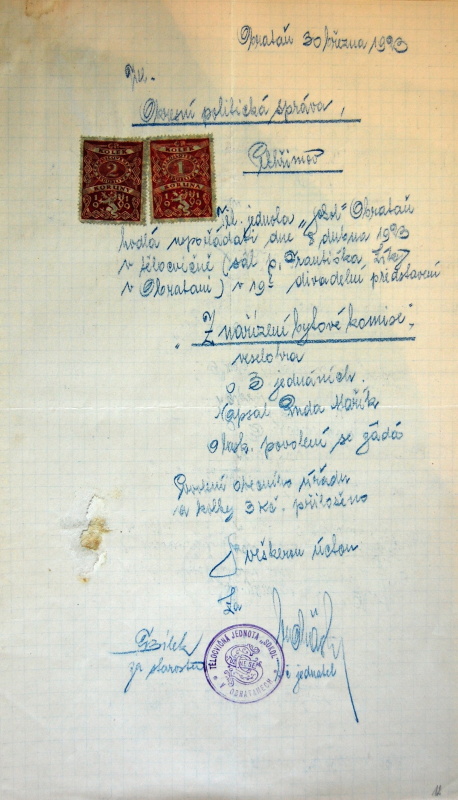 Obrataň 30 března 1923
Okresní politická správa,
Pelhřimov
ČR
KOLEK
2
KORUNY
ČR
KOLEK
1
KORUNA
Těl. jednota „Sokol" Obrataň
hodlá uspořádati dne 8 dubna 1923
v tělocvičně (sál p. Františka
v Obratani) v 19 divadelní představení
„Z nařízení bytové komise",
veselohra
o 3 jednáních.
Napsal Enda Mařík
o lask. povolení se žádá
Povolení obecního úřadu
a kolky 3 Kč. přiloženo
S veškerou úctou
Za
Bílek
za starostu
jednatel
TĚLOCVIČNÁ JEDNOTA „SOKOL"
V OBRATANECH